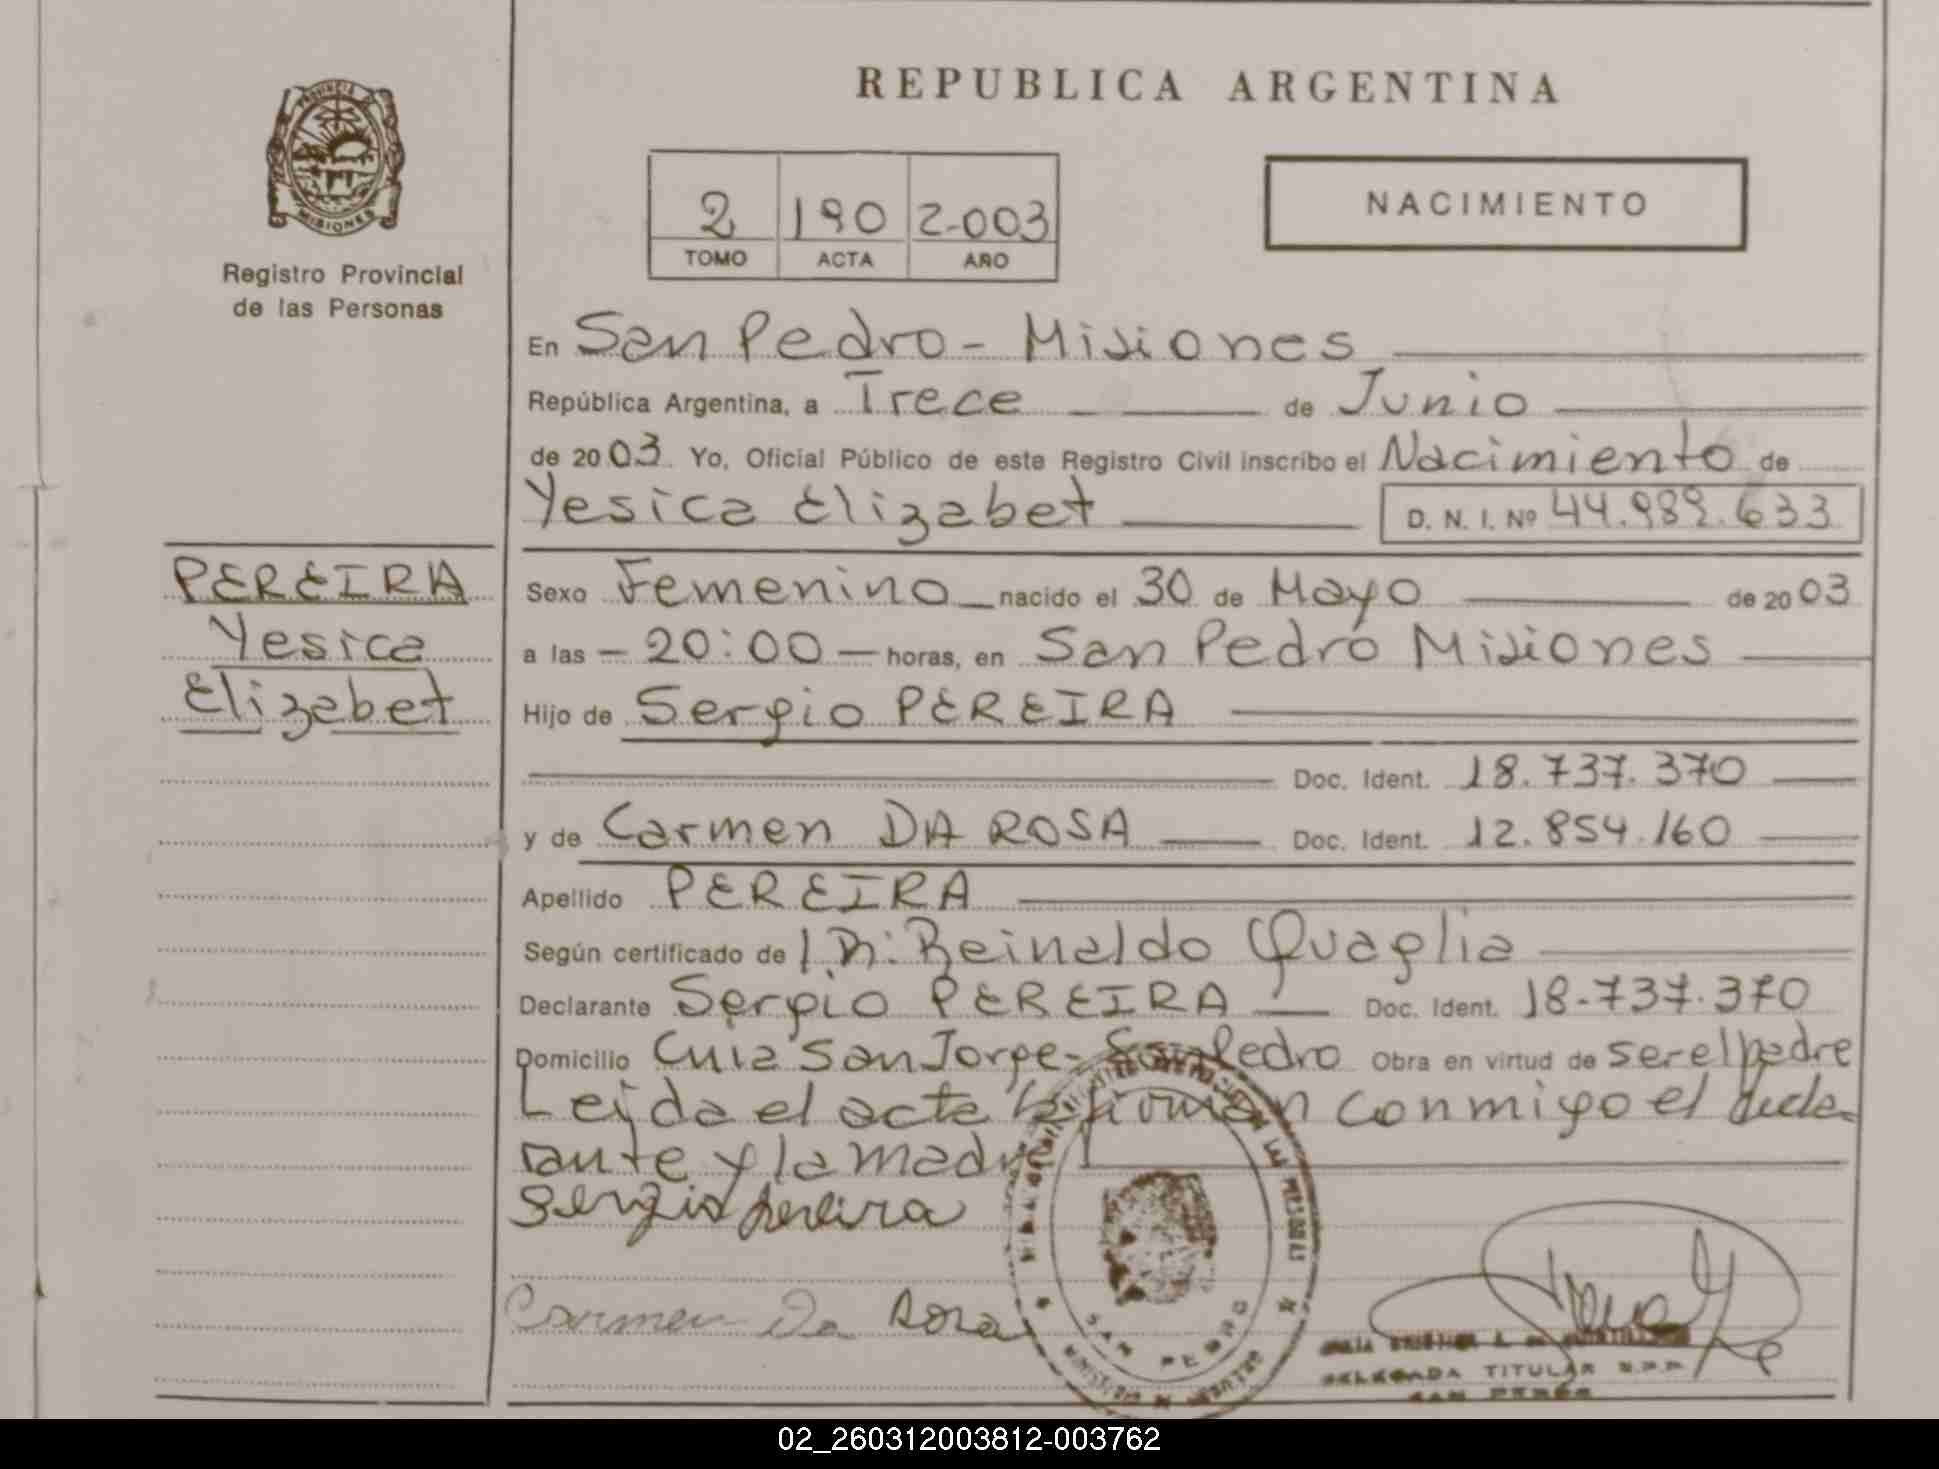 REPUBLICA ARGENTINA
PROVINCIA DE
MISIONES
Registro Provincial
de las Personas
2 190 2.003
TOMO ACTA AÑO
NACIMIENTO
En San Pedro - Misiones
República Argentina, a Trece de Junio
de 2003 Yo, Oficial Público de este Registro Civil inscribo el Nacimiento de
Yesica Elizabet D. N. I. Nº 44.989.633
PEREIRA
Yesica
Elizabet
Sexo Femenino nacido el 30 de Mayo de 2003
a las - 20:00 - horas, en San Pedro Misiones
Hijo de Sergio PEREIRA
Doc. Ident. 18.737.370
y de Carmen DA ROSA Doc. Ident. 12.854.160
Apellido PEREIRA
Según certificado de Reinaldo Quaglia
Declarante Sergio PEREIRA Doc. Ident. 18-737.370
Domicilio San Jorge - San Pedro Obra en virtud de ser el padre
Leida el acta la firman conmigo el decla-
rante y la madre
Sergio Pereira
Carmen Da Rosa
SAN PEDRO
DELEGADA TITULAR R.P.P.
SAN PEDRO
02_260312003812-003762